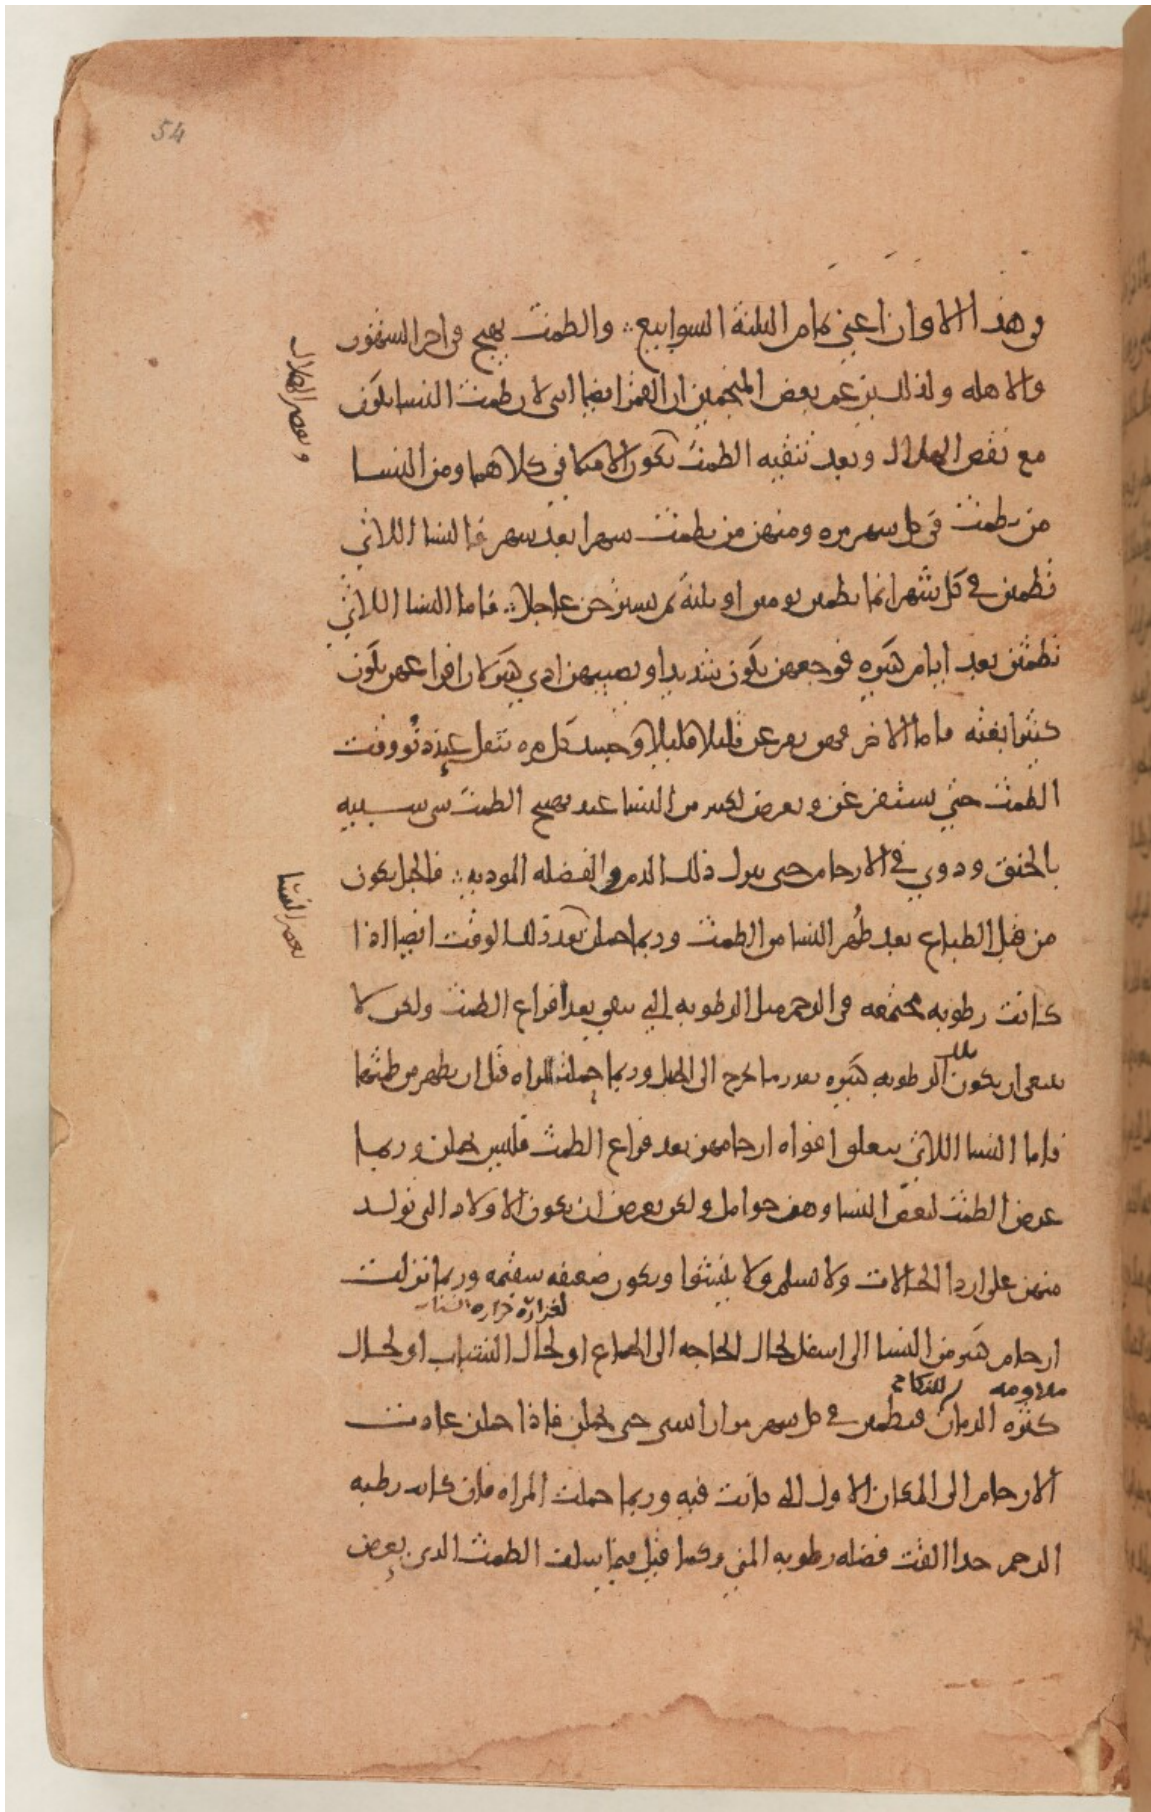 54
في هذا الاوان اعني تمام الثلثة السوابيع والطمث يهيج في اخر الشهور
والاهله ولذلك يزعم بعض المنجمين ان القمر ايضا انثى لان طمث النسا يكون
مع نقص الهلال وبعد تنقيه الطمث يكون الامتلا في كلاهما ومن النسا
من يطمث في كل شهر مره ومنهن من يطمث شهرا بعد شهر فالنسا اللاتي
تطمثن في كل شهر انما يطمثن يومين او ثلثة ثم يسترحن عاجلا فاما النسا اللاتي
تطمثن بعد ايام كثيره فوجعهن يكون شديدا ويصيبهن اذي كثير لان افراغهن يكون
كثيرا بغته فاما الاخر فهن يفرغن قليلا قليلا وجسد كل مره تثقل عند وقت
الطمث حتي يستفرغن ويعرض لكثير من النسا عند يهيج الطمث شي شبيه
بالخنق ودوي في الارحام حتى ينزل ذلك الدم والفضله الموذيه فالحبل يكون
من قبل الطباع بعد طهر النسا من الطمث وربما حملن بعد ذلك الوقت ايضا اذا
كانت رطوبه مجتمعه في الرحم مثل الرطوبه التي تبقي بعد افراغ الطمث ولكن لا
ينبغي ان يكون تلك الرطوبه كثيره بعدر ما تخرج الى الحبل وربما حملت المراه قبل ان يطهر من طمثها
فاما النسا اللاتي ينغلق افواه ارحامهن بعد فراغ الطمث فليس يحملن وربما
عرض الطمث لبعض النسا وهن حوامل ولكن يعرض ان يكون الاولاد التي تولد
منهن على اردا الحالات ولا تسلم ولا ينشوا ويكون ضعيفه سقيمه وربما نزلت
لغزارة حراره الشباب
ارحام كثير من النسا الى اسفل لحال الحاجه الى الجماع او لحال الشباب او لحال
ملاومه للنكاح
كثره الزمان فيطمثن في كل شهر مرارا شتى حتى يحملن فاذا حملن عادت
الارحام الى المكان الاول التي كانت فيه وربما حملت المراه فان كانت رطبه
الرحم جدا القت فضله رطوبه المني وكما قيل فيما سلف الطمث الذي يعرض
ونقص الهلال
بعض النسا